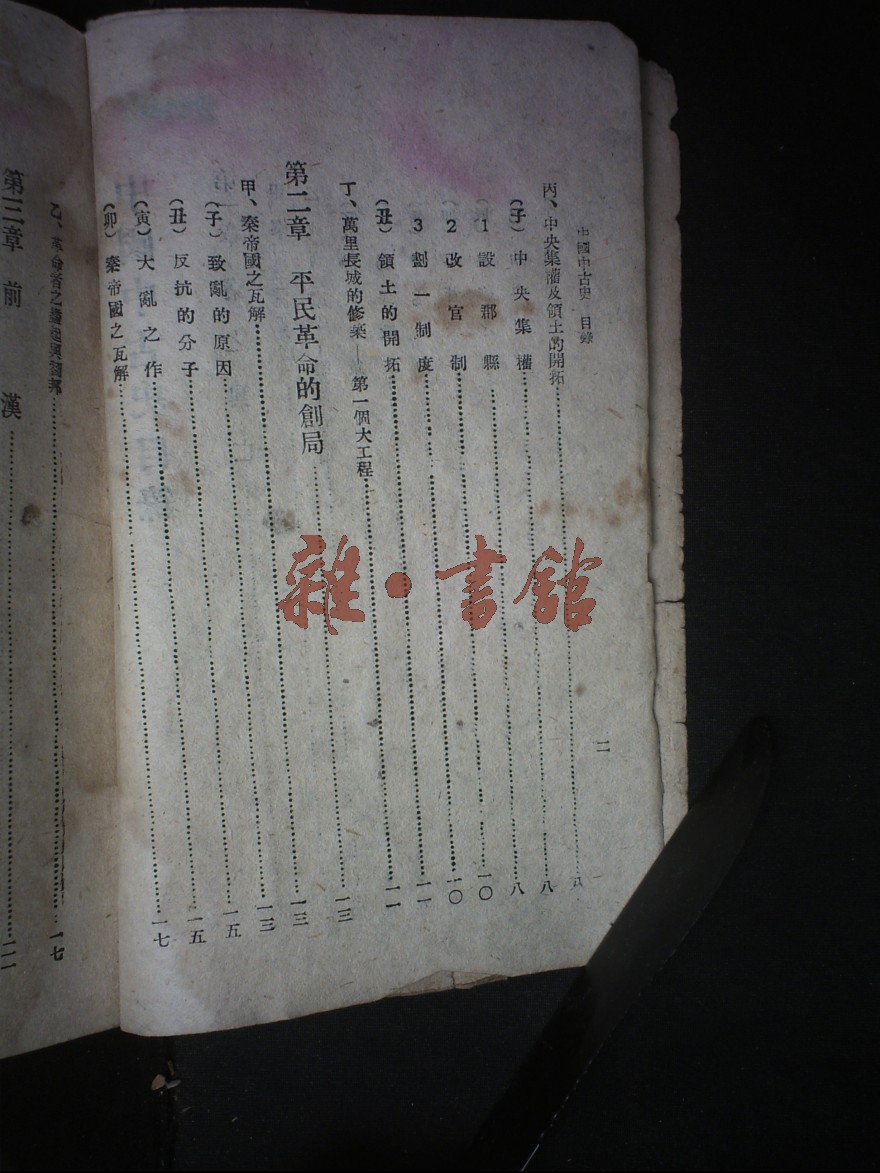 中國中古史 目錄 二
丙、中央集權及領土的開拓……八
(子)中央集權……八
1 設郡縣……八
2 改官制……一〇
3 劃一制度……一〇
(丑)領土的開拓……一一
丁、萬里長城的修築——第一個大工程……一一
第二章 平民革命的創局……一三
甲、秦帝國之瓦解……一三
(子)致亂的原因……一三
(丑)反抗的分子……一五
(寅)大亂之作……一五
(卯)秦帝國之瓦解……一七
乙、革命者之……一七
第三章 前漢……二一
雜·書館